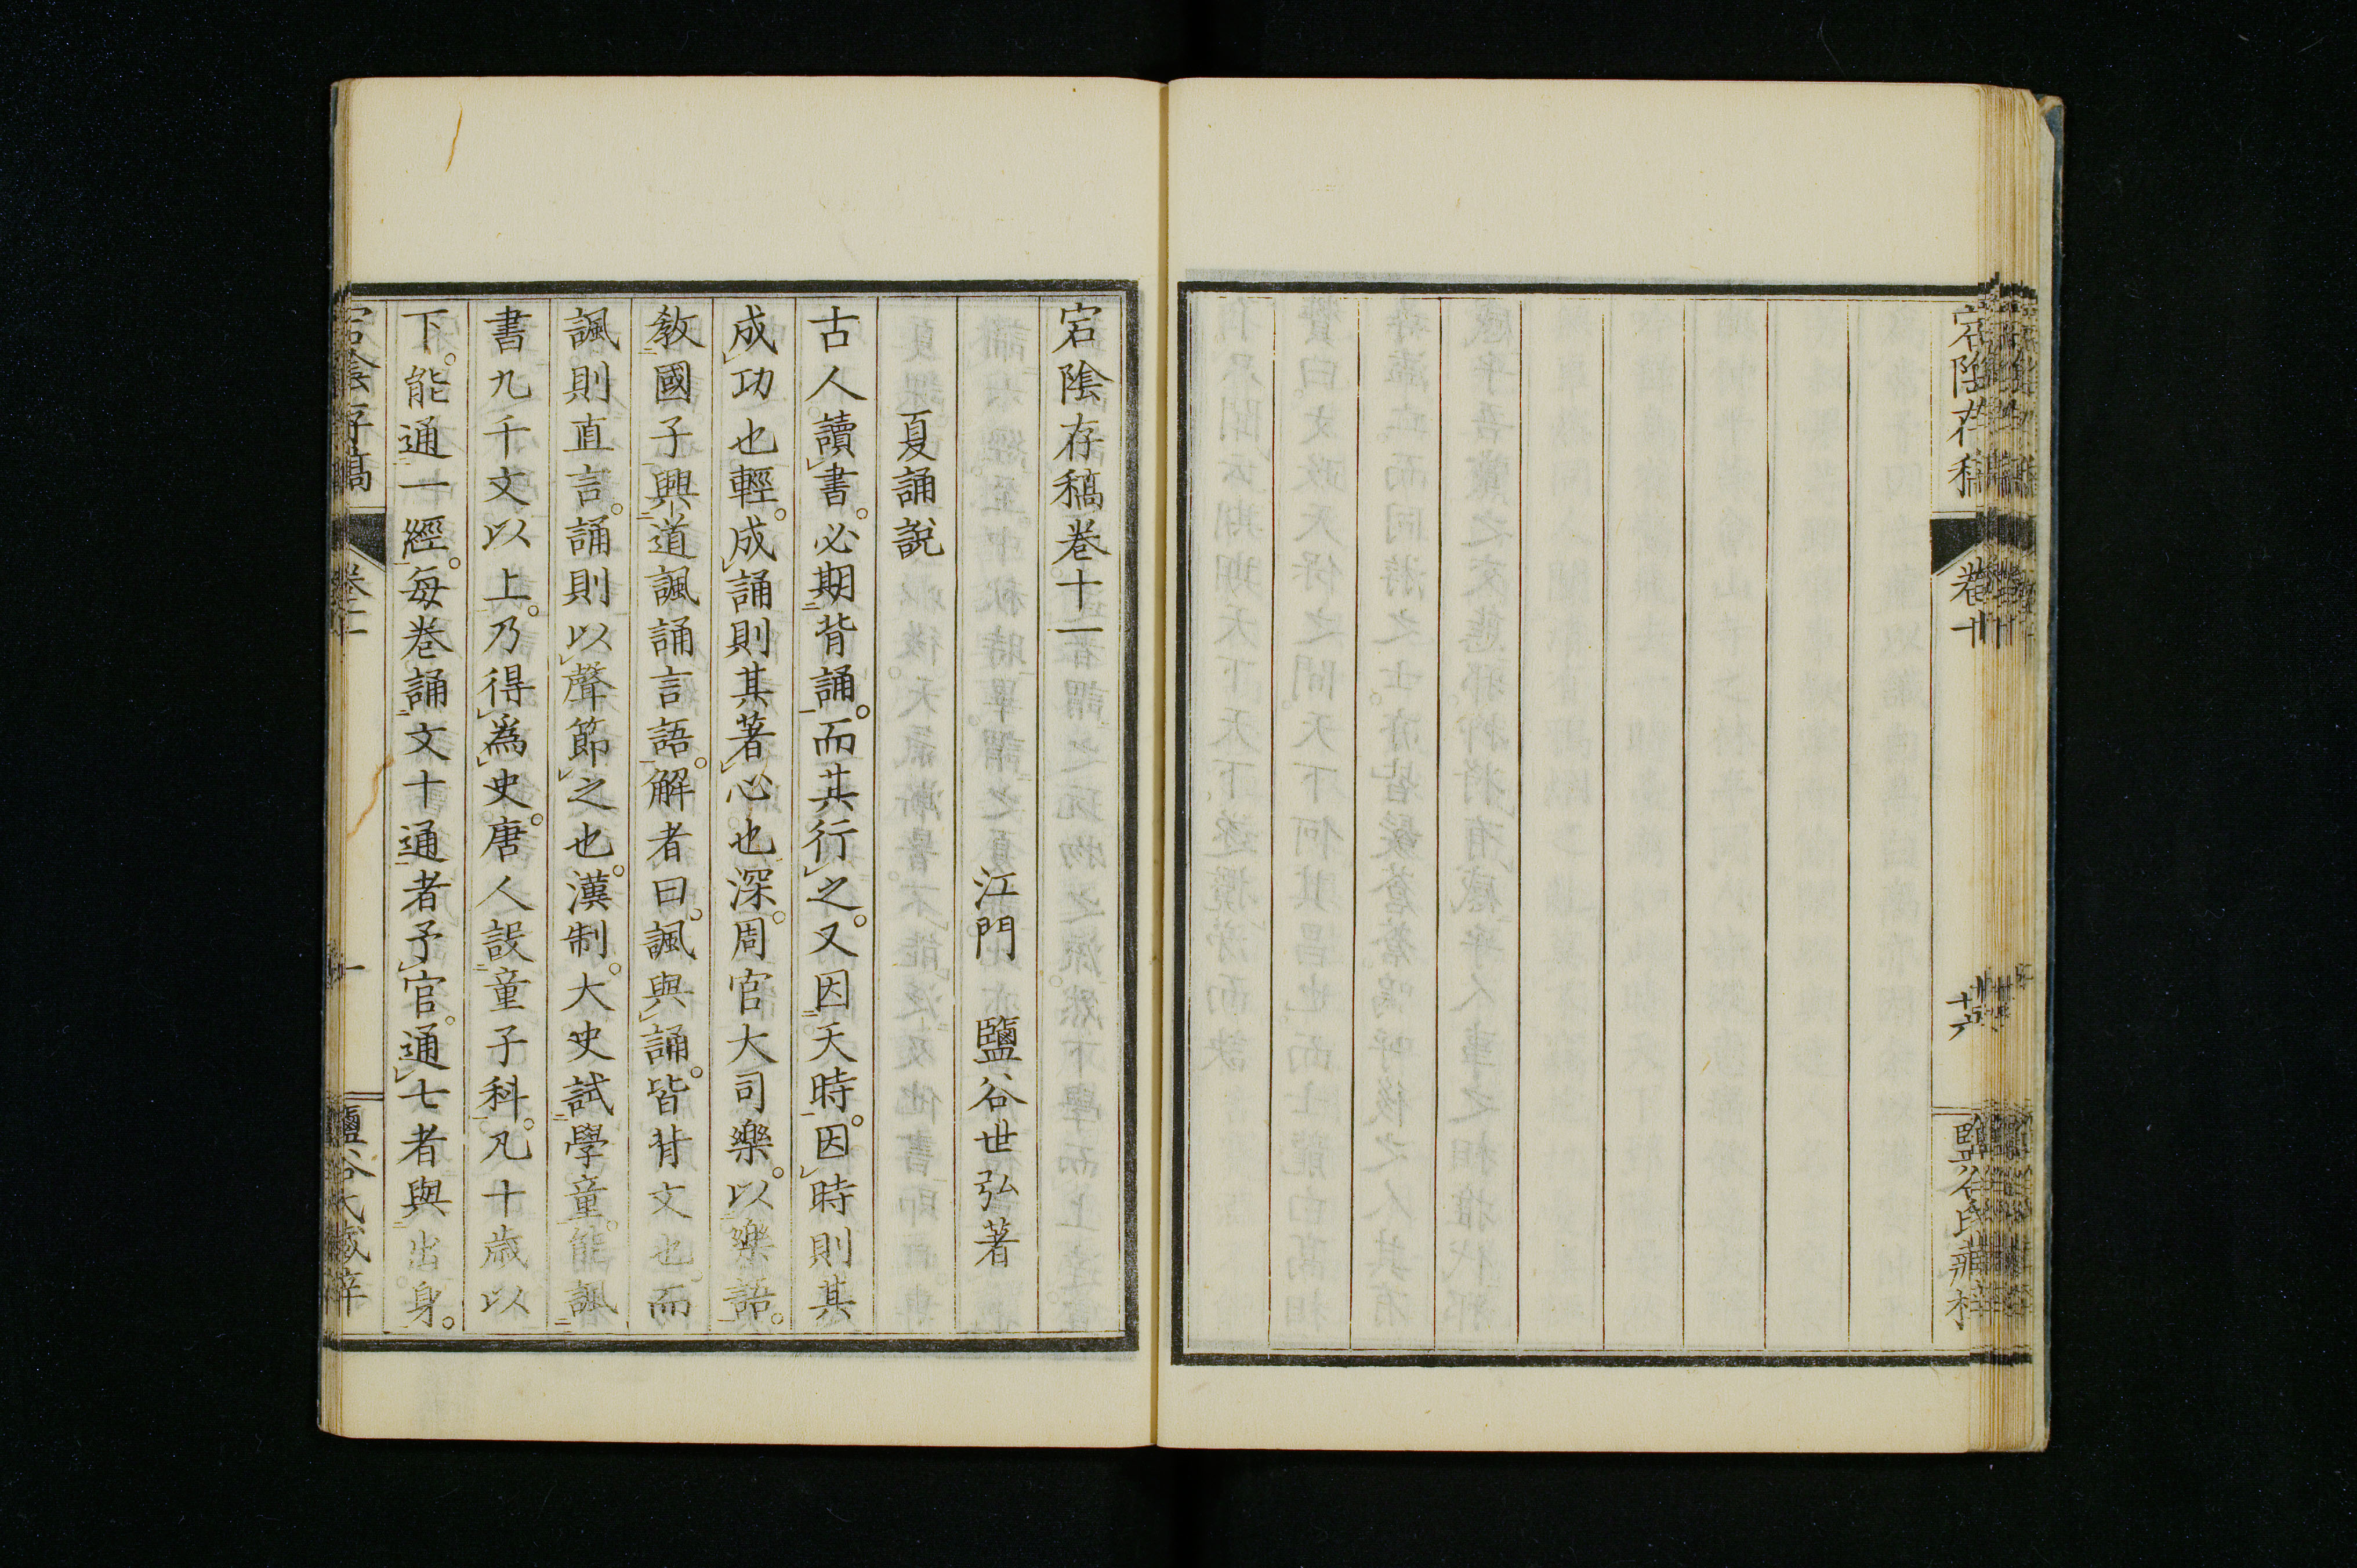 宕陰存稿卷十一
江門 鹽谷世弘著
夏誦說
古人讀書。必期背誦。而其行之。又因天時。因時則其
成功也輕。成誦則其著心也深。周官大司樂。以樂語。
教國子興道諷誦言語。解者曰。諷與誦。皆背文也。而
諷則直言。誦則以聲節之也。漢制。大史試學童。能諷
書九千文以上。乃得爲史。唐人設童子科。凡十歲以
下。能通一經。每卷誦文十通者予官。通七者與出身。
宕陰存稿 卷十一 一 鹽谷氏藏梓
宕陰存稿 卷十 十六